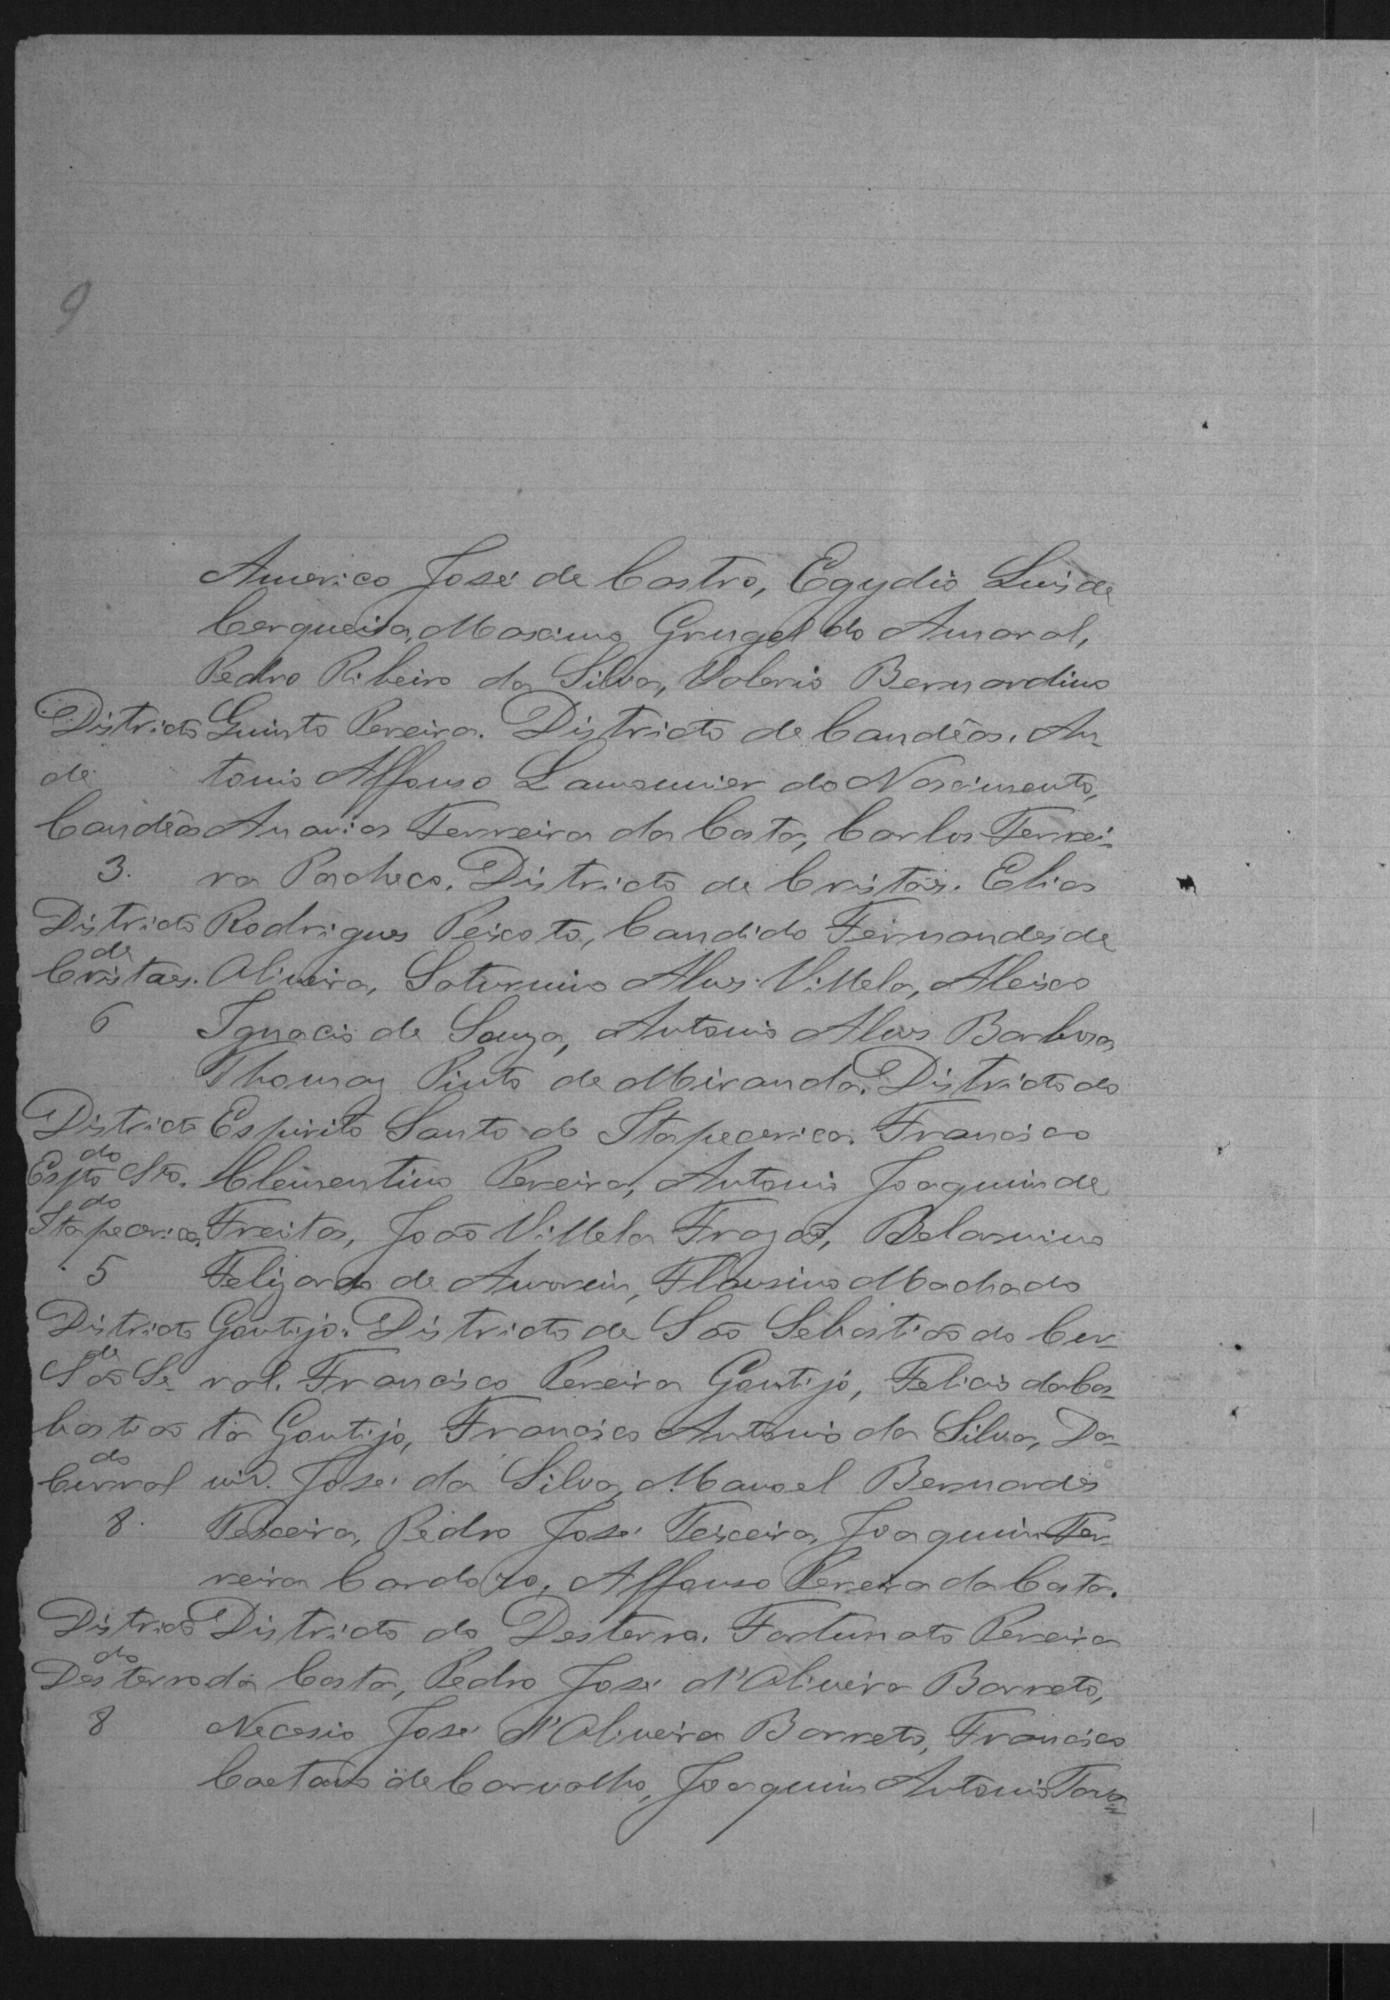 9
Americo José de Castro, Egydio Luis de
Cerqueira, Maximo Grugel do Amaral,
Pedro Ribeiro da Silva, Valerio Bernardino
Districto Quinto Pereira. Districto de Candêas. An-
de tonio Affonso Lamounier do Nascimento,
Candêas Ananias Ferreira da Costa, Carlos Ferrei-
3. ra Pacheco. Districto de Cristaes. Elias
Districto Rodrigues Peixoto, Candido Fernandes de
de
Cristaes. Oliveira, Saturnino Alves Villela, Aleixo
6 Ignacio de Souza, Antonio Alves Barbosa
Thomaz Pinto de Miranda. Districto do
Districto Espirito Santo do Itapecerica. Francisco
do
Espto Sto. Clementino Pereira, Antonio Joaquim de
do
Itapecerica. Freitas, João Villela Frazão, Belarmino
5 Felizardo de Amorim, Flausino Machado
Districto Gontijo. Districto de São Sebastião do Cur-
de
São Se ral. Francisco Pereira Gontijo, Felicio da Cos-
bastião ta Gontijo, Francisco Antonio da Silva, Da-
do
Curral vid José da Silva, Manoel Bernardes
8. Teixeira, Pedro José Teixeira, Joaquim Fer-
reira Cardozo, Affonso Pereira da Costa.
Districto Districto do Desterro. Fortunato Pereira
do
Desterro da Costa, Pedro José d'Oliveira Barreto,
8 Necesio José d'Oliveira Barreto, Francisco
Caetano de Carvalho, Joaquim Antonio